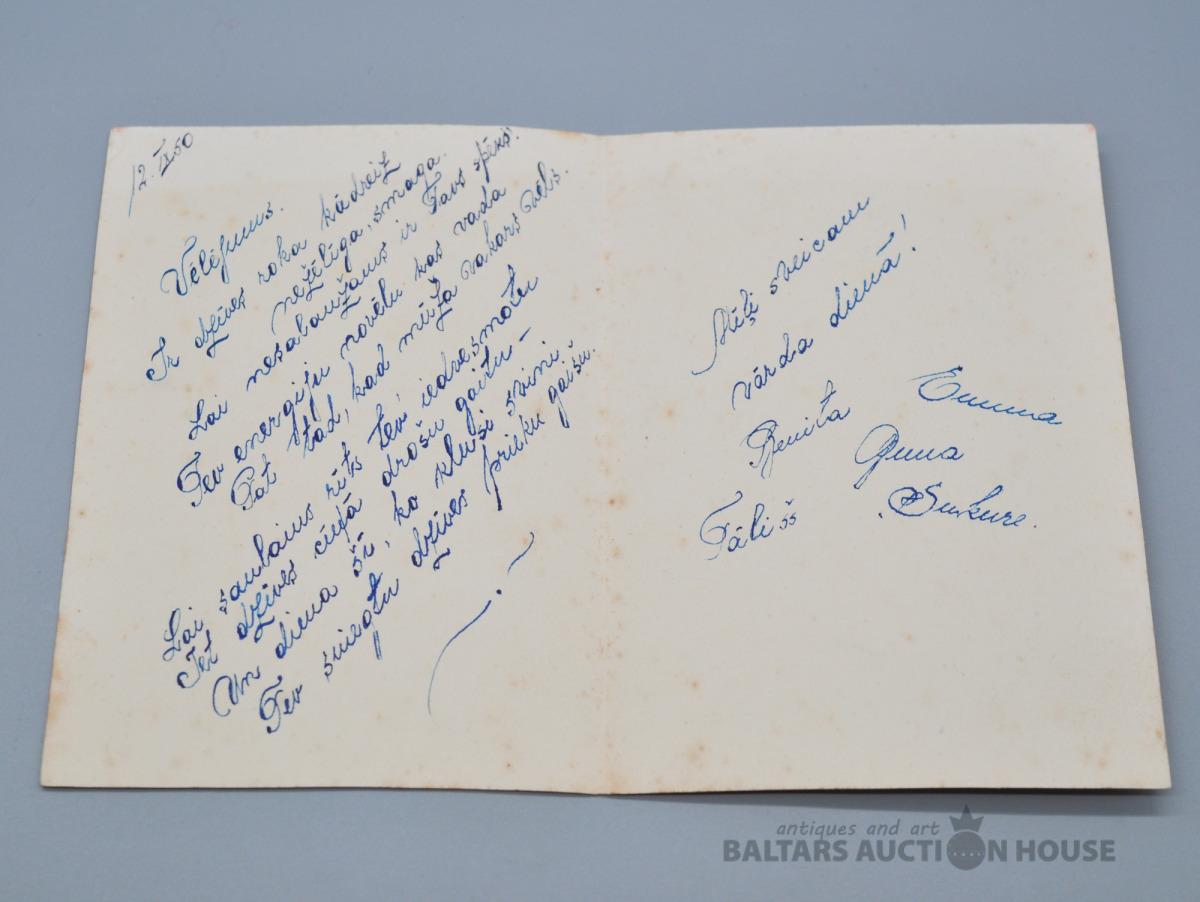 12.IX50
Vēlējums.
Ir dzīves roka kādreiz
nežēlīga, smaga.
Lai nesalaužams ir Tavs spēks!
Tev enerģiju novēlu kas vada
Pat tad, kad mūža vakars vēls.
Lai saulains rīts tev iedvesmotu
Iet dzīves ceļā drošu gaitu –
Un diena šī, ko klusi svini
Tev sniegtu dzīves prieku gaišu.
Mīļi sveicam
vārda dienā!
Emma
Benita
Anna
Tālis
Sukure.
antiques and art
BALTARS AUCTION HOUSE